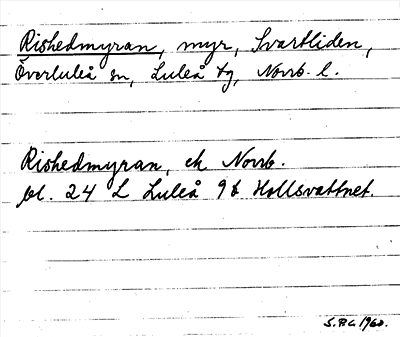 Rishedmyran, myr, Svartliden,
Överluleå sn, Luleå tg, Norrb. l.
Rishedmyran, ek Norrb.
bl. 24 L Luleå 9 b Hollsvattnet.
1960.